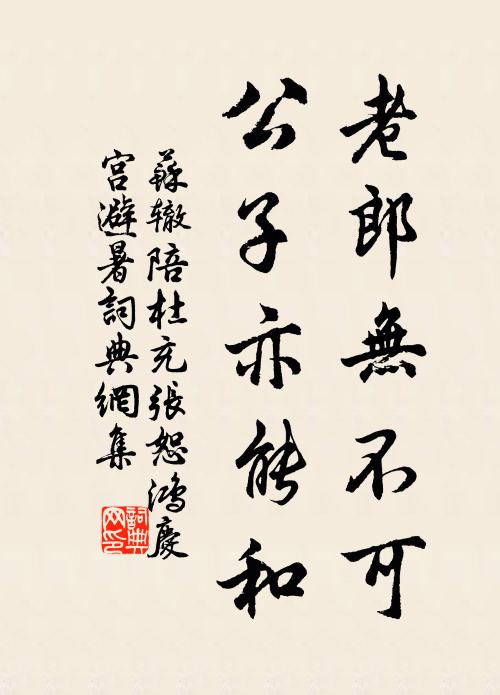 老郎無不可
公子亦能和
蘇辙陪杜充張恕鴻慶
宫避暑詞典網集
詞典
网印